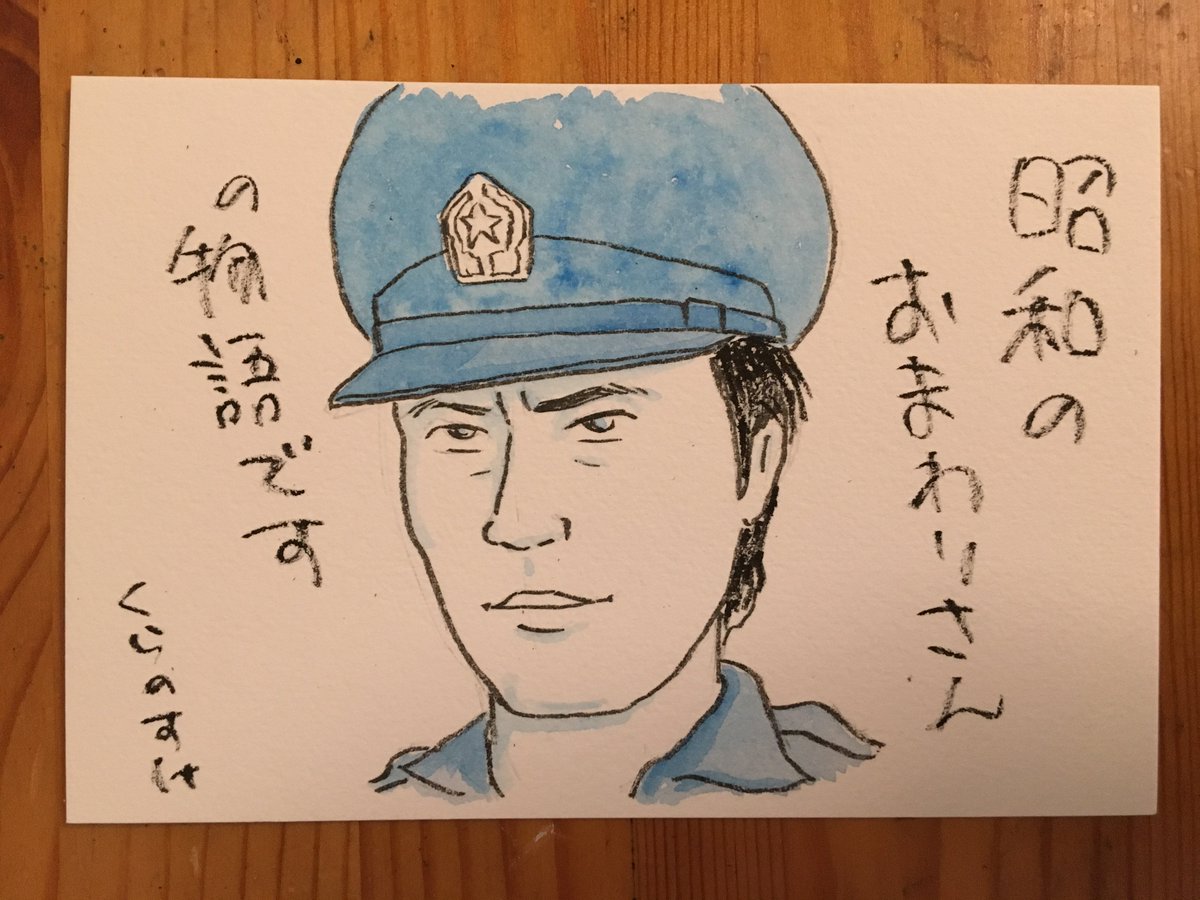 昭和の
おまわりさん
の物語です
くらのすけ